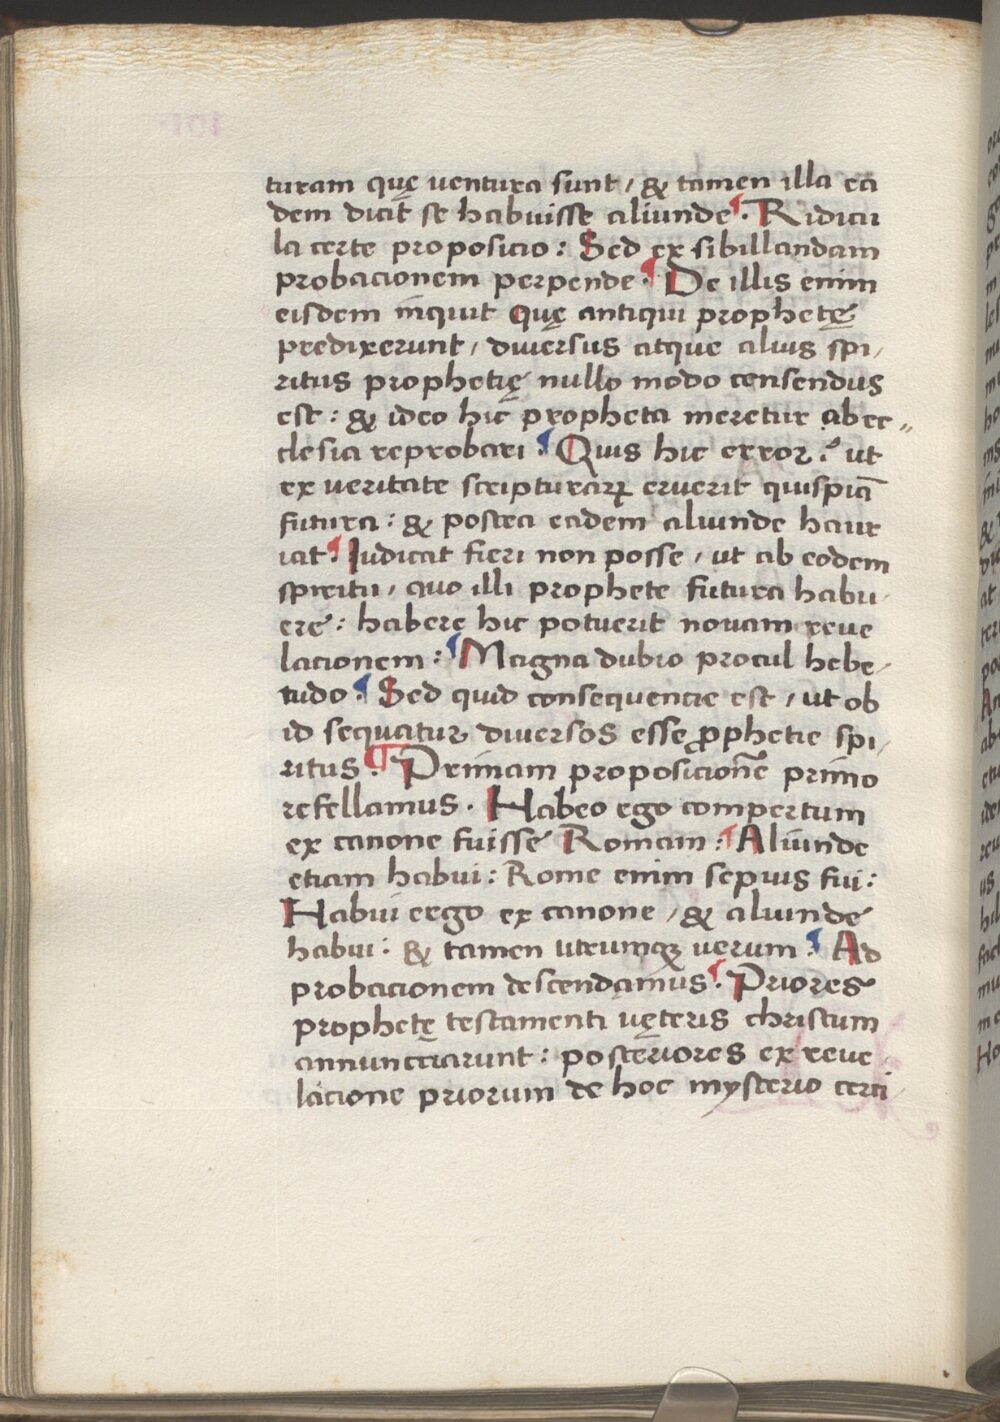 turam quę ventura sunt / & tamen illa ea
dem dicit̄ se habuisse aliunde ¶. Ridicu
la certe proposicio : Sed ex sibillandam
probacionem perpende ¶. De illis enim
eisdem inquit quę antiqui prophetę
predixerunt / diversus atque alius spi /
ritus prophetię nullo modo censendus
est : & ideo hic propheta meretur ab ec „
clesia reprobari ¶. Quis hic error ? ut
ex veritate scripturarꝝ eruerit quispiā
futura : & postea eadem aliunde haur
iat ¶. Iudicat fieri non posse / ut ab eodem
spiritu / quo illi prophete futura habu /
ere : habere hic potuerit novam reve
lacionem : ¶ Magna dubio procul hebe /
tudo ¶. Sed quid consequencie est / ut ob
id sequatur diversos esse ꝓphetie spi /
ritus ¶. Primam proposicionē primo
refellamus . Habeo ego compertum
ex canone fuisse Romam : ¶ Aliunde
etiam habui : Rome enim sepius fui :
Habui ergo ex canone / & aliunde
habui : & tamen utrumqꝫ verum ¶. Ad
probacionem descendamus ¶. Priores
prophetę testamenti vęteris christum
annunctiarunt : posteriores ex reve /
lacione priorum de hoc mysterio certi /